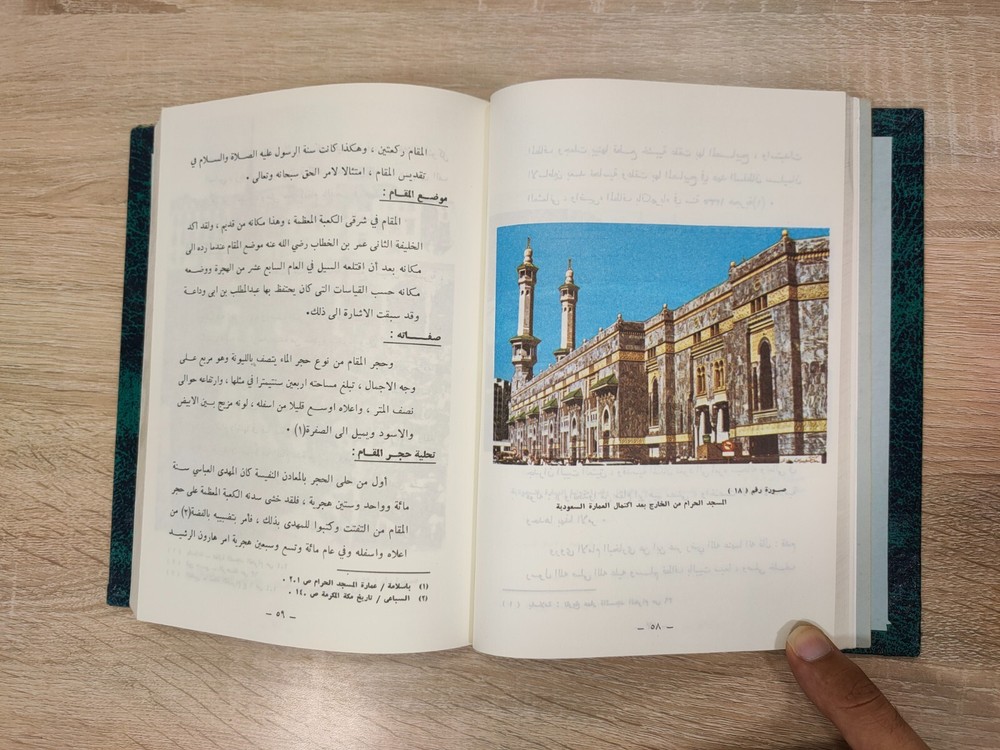 صورة رقم ( ١٨ )
المسجد الحرام من الخارج بعد اكتمال العمارة السعودية
ـ ٥٨ ـ
المقام ركعتين ، وهكذا كانت سنة الرسول عليه الصلاة والسلام في
تقديس المقام ، امتثالا لامر الحق سبحانه وتعالى .
موضع المقام :
المقام في شرقى الكعبة المعظمة ، وهذا مكانه من قديم ، ولقد اكد
الخليفة الثانى عمر بن الخطاب رضي الله عنه موضع المقام عندما رده الى
مكانه بعد أن اقتلعه السيل في العام السابع عشر من الهجرة ووضعه
مكانه حسب القياسات التى كان يحتفظ بها عبدالمطلب بن ابى وداعة
وقد سبقت الاشارة الى ذلك.
صفـــاته :
وحجر المقام من نوع حجر الماء يتصف بالليونة وهو مربع على
وجه الاجمال ، تبلغ مساحته اربعين سنتيمترا في مثلها ، وارتفاعه حوالى
نصف المتر ، واعلاه اوسع قليلا من اسفله ، لونه مزيج بين الابيض
والاسود ويميل الى الصفرة(١) .
تحلية حجر المقام :
أول من حلى الحجر بالمعادن النفيسة كان المهدى العباسي سنة
مائة وواحد وستين هجرية ، فلقد خشى سدنه الكعبة المعظمة على حجر
المقام من التفتت وكتبوا للمهدى بذلك ، فأمر بتضبيبه بالفضة(٢) من
اعلاه واسفله وفي عام مائة وتسع وسبعين هجرية امر هارون الرشيد
(١) باسلامة / عمارة المسجد الحرام ص ٢٠١ .
(٢) السباعى / تاريخ مكة المكرمة ص ١٤٠ .
ـ ٥٩ ـ